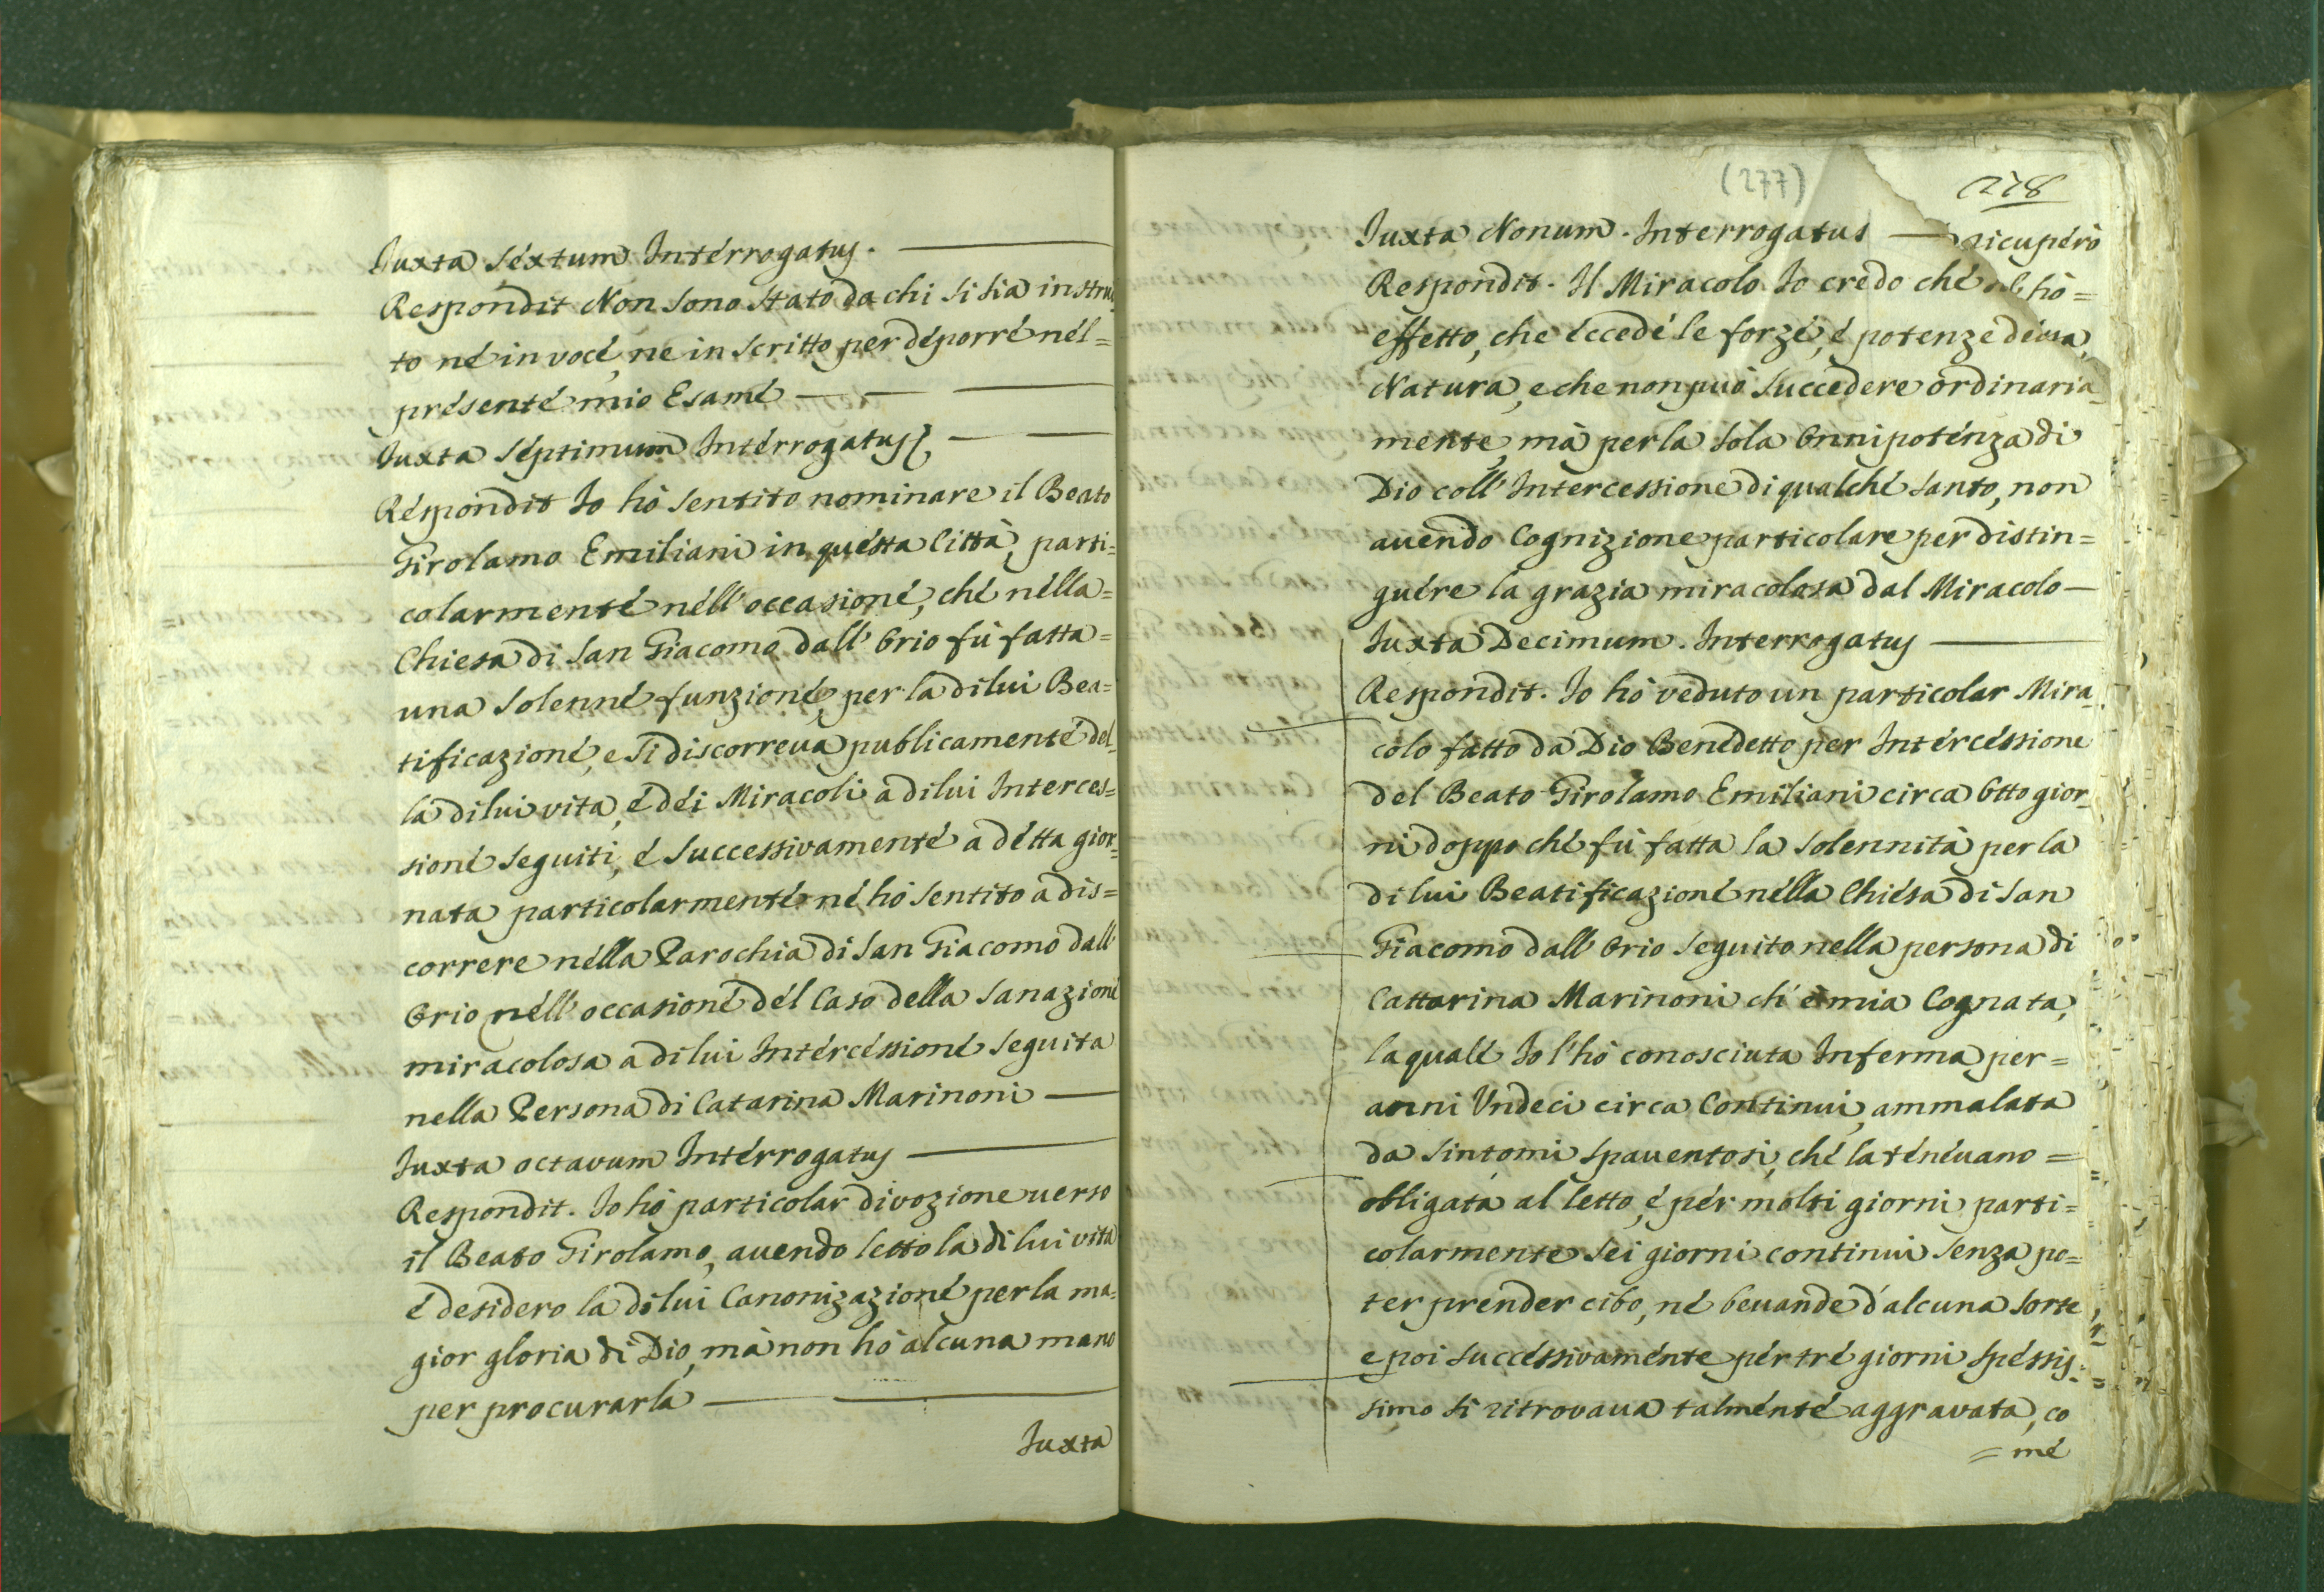 Iuxta sextum Interrogatus.
Respondit Non sono stato da chi si sia instru
to né in voce, ne in scritto per déporré nél=
présenté mio Esamé
Iuxta séptimum Intérrogatus
Réspondit Io hò sentito nominare il Beato
Girolamo Emiliani in quésta Città, parti=
colarmenté néll'occasioné, ché nélla=
Chiesa di San Giacomo dall'Orio fù fatta=
una solenné funzioné, per la di lui Bea=
tificazioné, e si discorreua publicamenté del=
la di lui vita, é déi Miracoli à di lui Interces=
sioné seguiti, é successivamenté a détta gior=
nata particolarmenté né hò sentito a dis=
correre nélla Parochia di San Giacomo dall'
Orio néll'occasioné dél Caso della sanazioné
miracolosa a di lui Intércéssioné seguita
nella Persona di Catarina Marinoni
Iuxta octavum Intérrogatus
Respondit. Io hò particolar divozione uerso
il Beato Girolamo, auendo letto la di lui vita
é desidero la di lui Canonizazioné per la ma=
gior gloria di Dio, mà non hò alcuna mano
per procurarla
Iuxta
(277)
278
Iuxta Nonum. Interrogatus
ricupérò
Respondit. Il Miracolo Io credo ché
hò=
effetto, che éccedé le forzé, é potenze
Natura, e che non può succedere ordinaria=
mente, mà per la sola Onnipoténza di
Dio coll'Intercessione di qualché santo, non
auendo Cognizione particolare per distin=
guére la grazia miracolosa dal Miracolo
Iuxta Decimum. Interrogatus
Respondit. Io hò veduto un particolar Mira=
colo fatto da Dio Benédetto per Intércéssione
del Beato Girolamo Emiliani circa Otto gior=
ni doppo ché fù fatta la solennità per la
di lui Beatificazioné nélla Chiésa di San
Giacomo dall'Orio seguito nella persona di
Cattarina Marinoni ch'è mia Cognata,
la qualé Io l'hò conosciuta Inferma per=
anni Vndeci circa Continui, ammalata
da sintomi spauentosi, ché la ténéuano=
obligata al letto, é pér molti giorni parti=
colarmente sei giorni continui senza po=
ter prender cibo, né beuande d'alcuna sorte
e poi succéssivaménte pér tré giorni spéssis=
simo si ritrovaua talménté aggravata, co
=mé